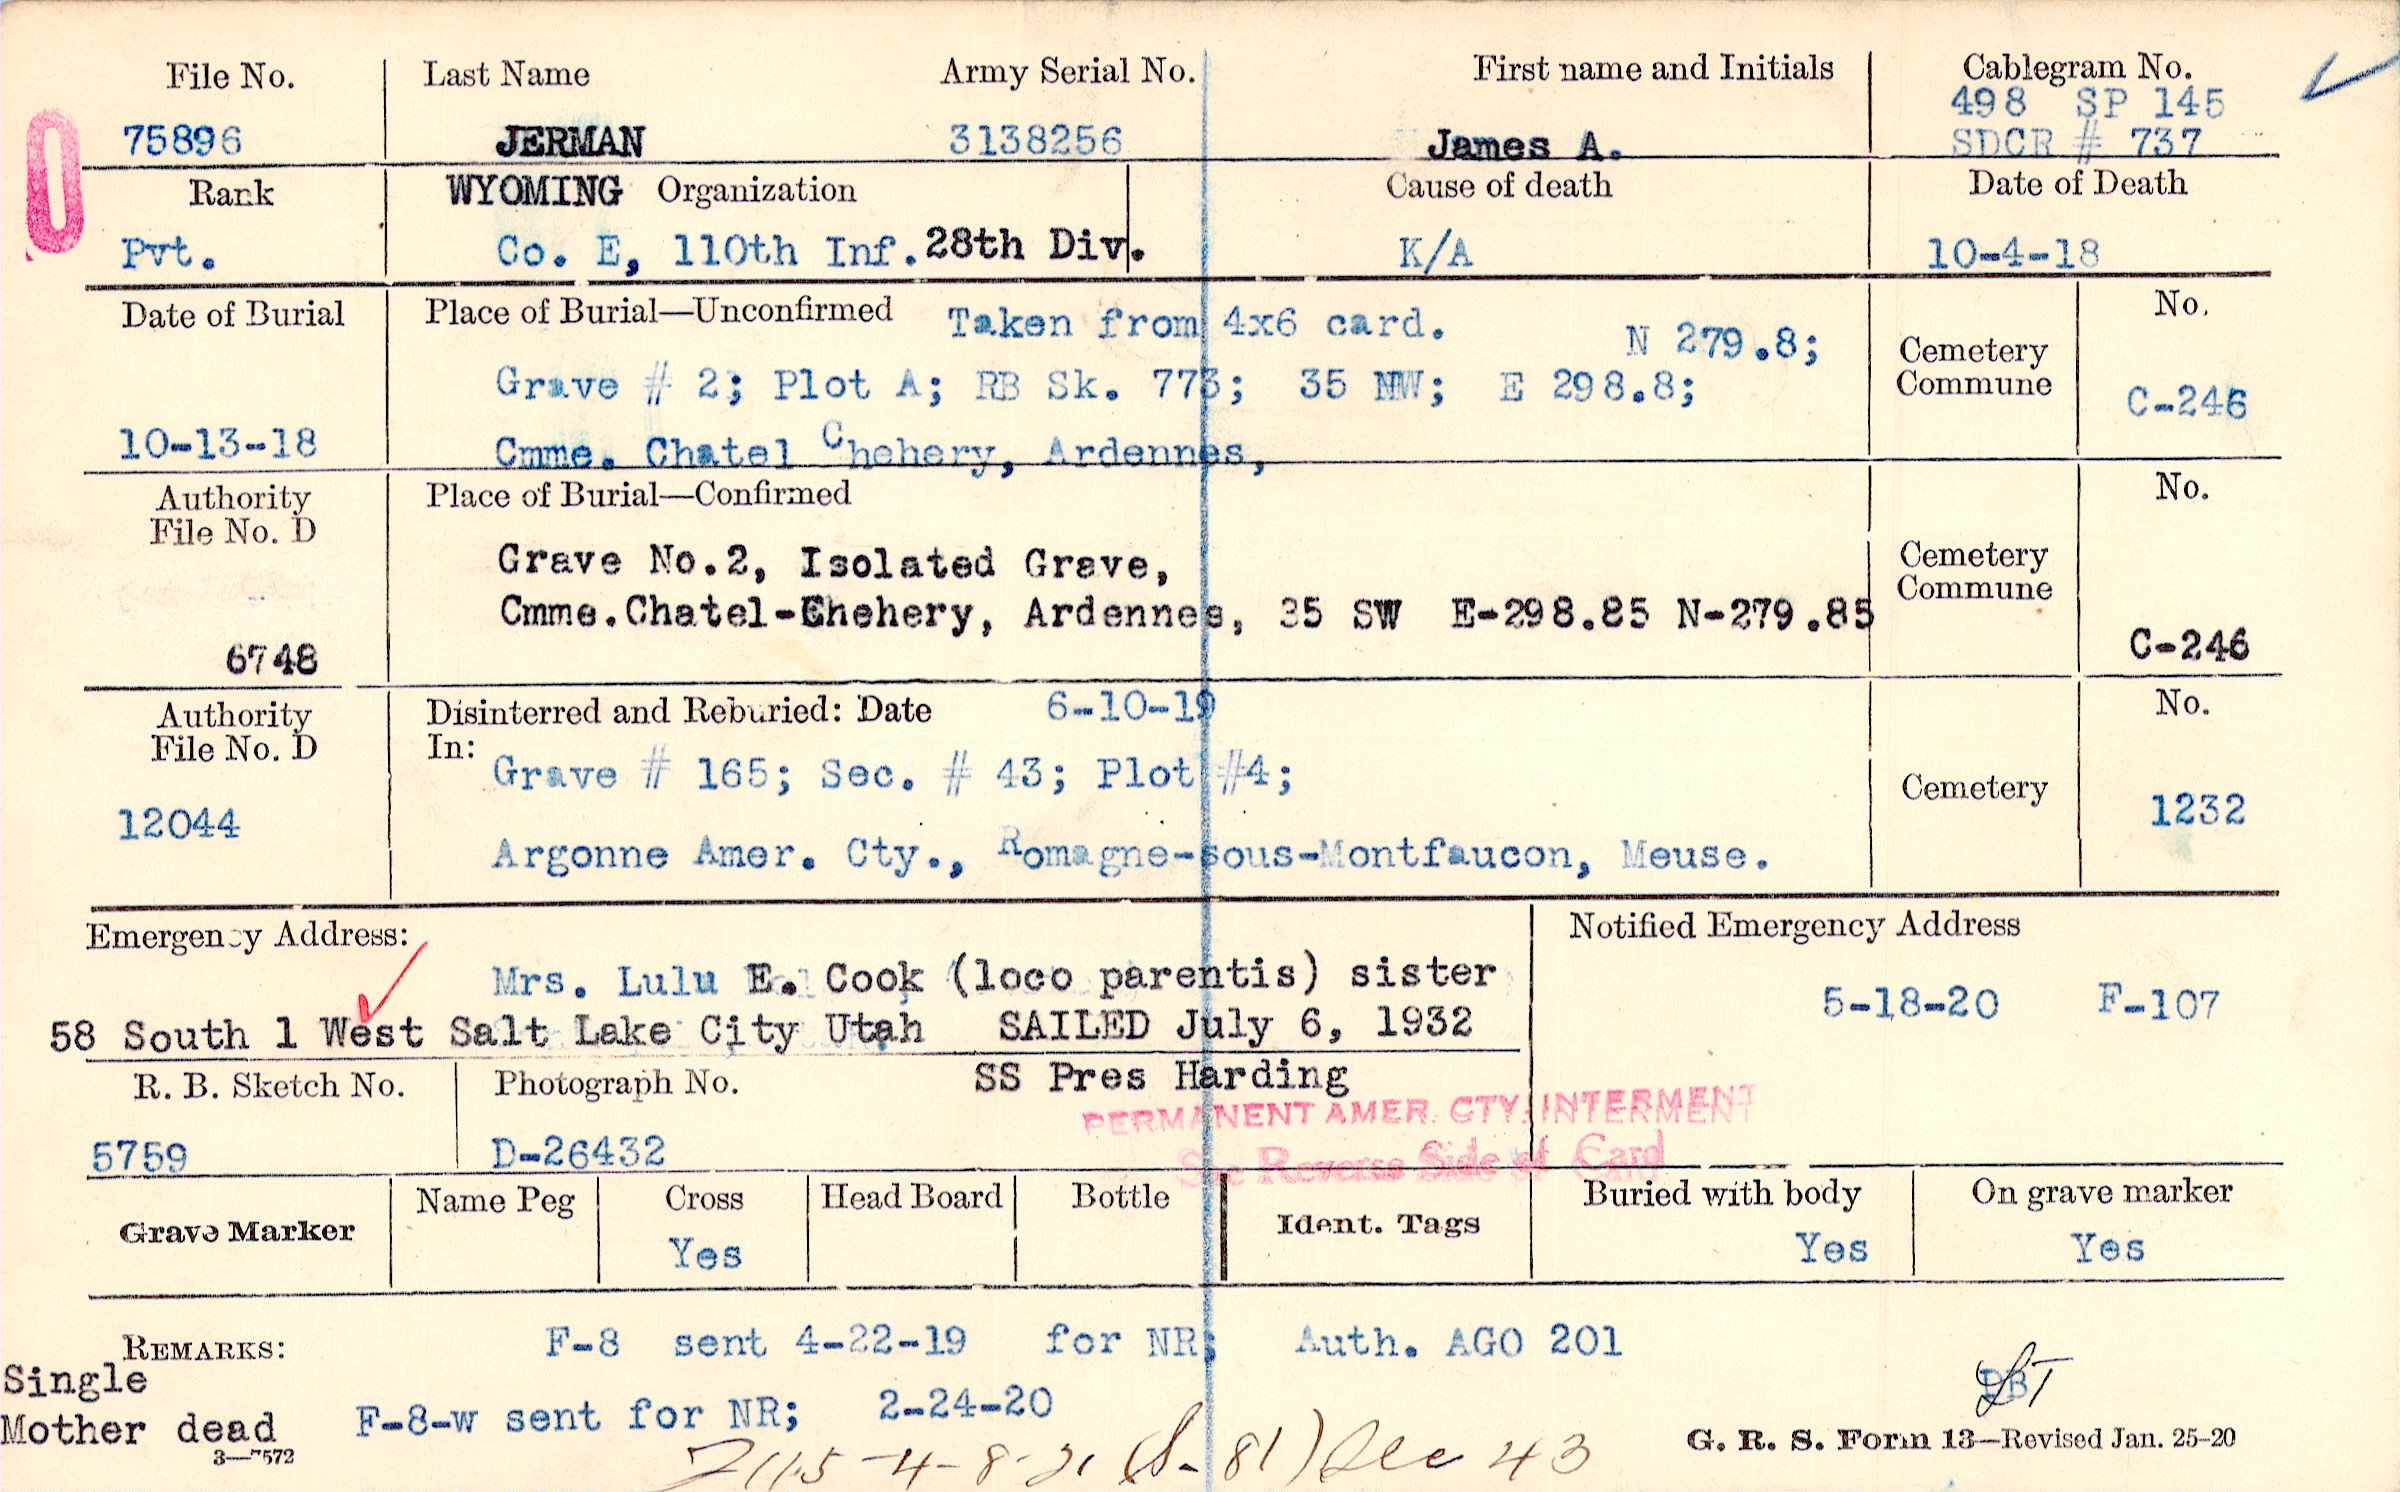 File No. Last Name Army Serial No. First name and Initials Cablegram No.
498 SP 145
75896 JERMAN 3138256 James A. SDCR # 737
Rank WYOMING Organization Cause of death Date of Death
Pvt. Co. E, 110th Inf. 28th Div. K/A 10-4-18
Date of Burial Place of Burial—Unconfirmed Taken from 4x6 card. No.
N 279.8; Cemetery
Grave # 2; Plot A; RB Sk. 773; 35 NW; E 298.8; Commune C-246
10-13-18 Cmme. Chatel Chehery, Ardennes,
Authority Place of Burial—Confirmed No.
File No. D
Grave No.2, Isolated Grave, Cemetery
Cmme.Chatel-Chehery, Ardennes, 35 SW E-298.85 N-279.85 Commune
6748 C-246
Authority Disinterred and Reburied: Date 6-10-19 No.
File No. D In:
Grave # 165; Sec. # 43; Plot #4; Cemetery
12044 1232
Argonne Amer. Cty., Romagne-sous-Montfaucon, Meuse.
Emergency Address: Notified Emergency Address
Mrs. Lulu E. Cook (loco parentis) sister 5-18-20 F-107
58 South 1 West Salt Lake City Utah SAILED July 6, 1932
R. B. Sketch No. Photograph No. SS Pres Harding
PERMANENT AMER. CTY. INTERMENT
5759 D-26432 See Reverse Side of Card
Grave Marker Name Peg Cross Head Board Bottle Ident. Tags Buried with body On grave marker
Yes Yes Yes
REMARKS: F-8 sent 4-22-19 for NR; Auth. AGO 201
Single
Mother dead F-8-w sent for NR; 2-24-20
3—7572 G. R. S. Form 13—Revised Jan. 25-20
4-8-21 (S-81) Sec 43